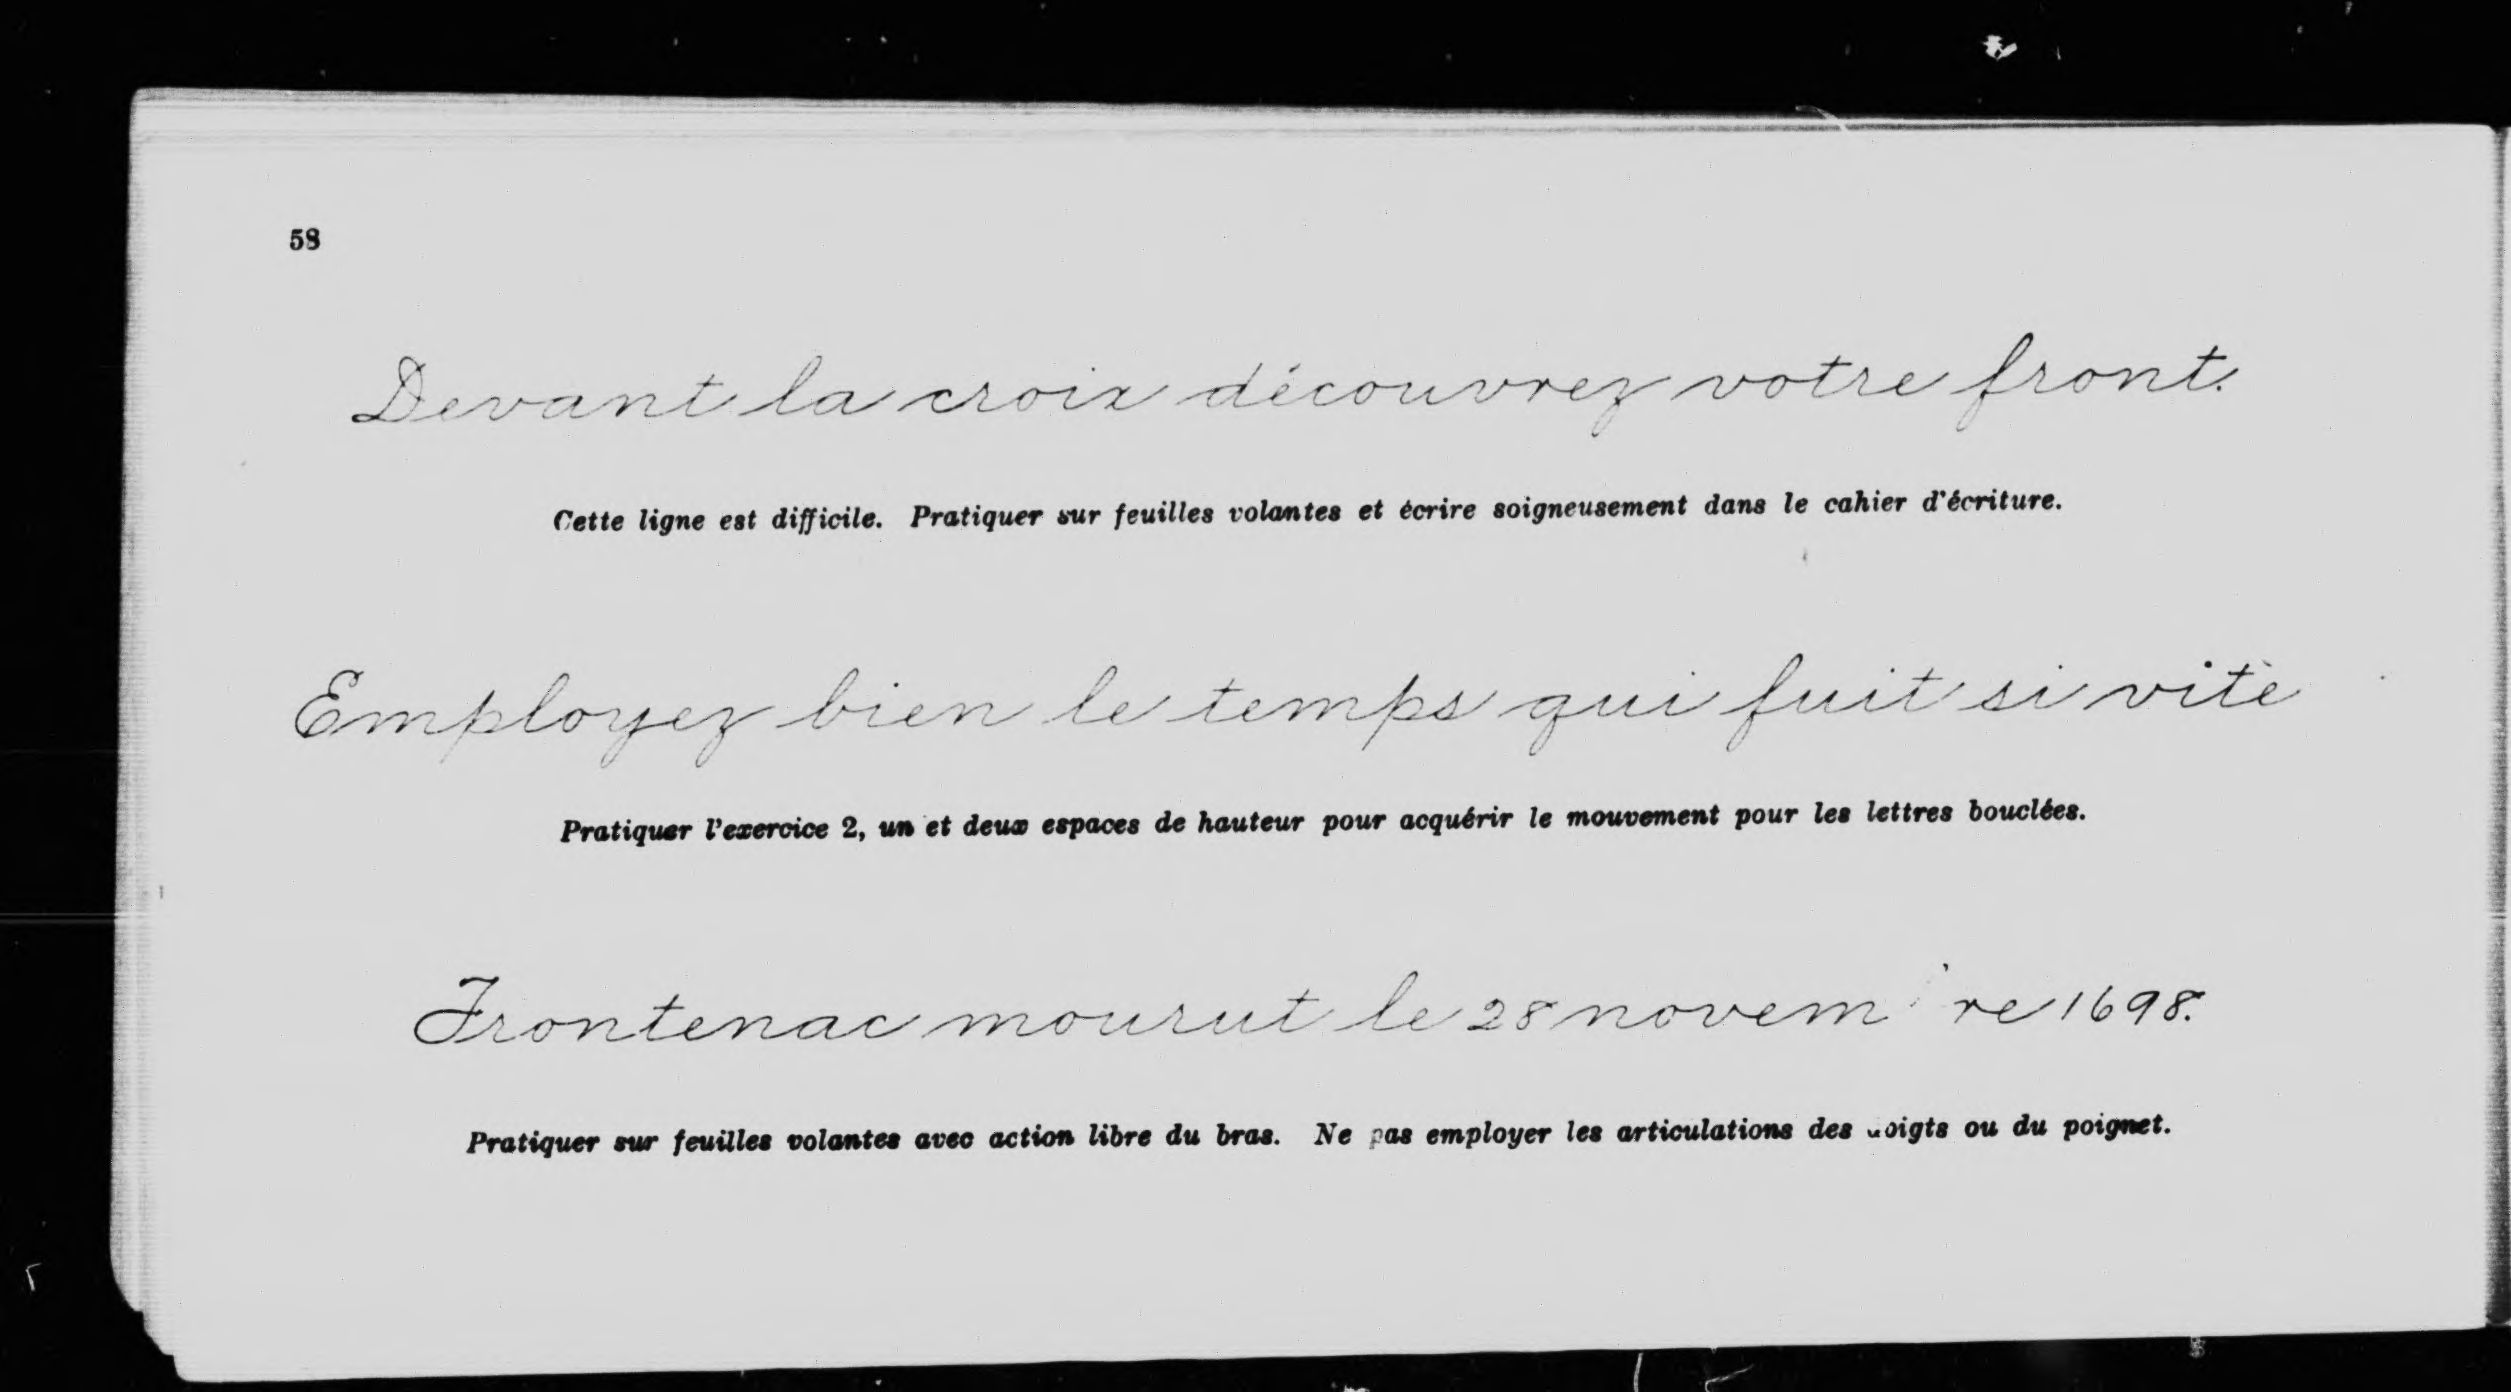 58
Devant la croix découvrez votre front.
Cette ligne est difficile. Pratiquer sur feuilles volantes et écrire soigneusement dans le cahier d'écriture.
Employez bien le temps qui fuit si vite
Pratiquer l'exercice 2, un et deux espaces de hauteur pour acquérir le mouvement pour les lettres bouclées.
Frontenac mourut le 28 novem re 1698.
Pratiquer sur feuilles volantes avec action libre du bras. Ne pas employer les articulations des doigts ou du poignet.